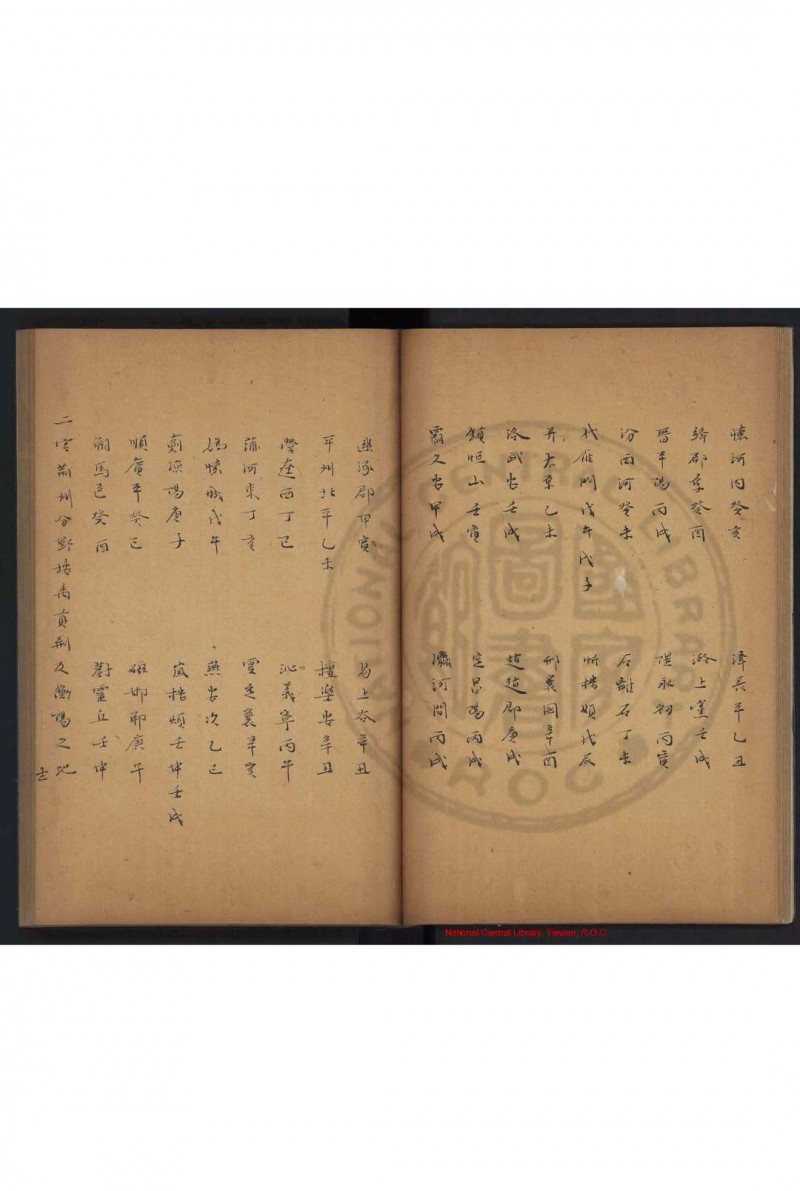 懷河內癸亥 澤長平乙丑
絳郡辛癸酉 潞上黨壬戌
晉平陽丙戌 隰永初丙寅
汾西河癸未 石離石丁未
代雁門戊午戊子 忻樓煩戊辰
并太原乙未 邢襄國辛酉
洺武安壬戌 趙趙郡庚戌
鎮恒山壬寅 定昌陽丙戌
霸久安甲戌 瀛河間丙戌
幽涿郡甲寅 易上谷辛丑
平州北平乙未 檀樂安辛丑
西丁巳 沁義寧丙午
蒲河東丁亥 雲定襄辛亥
媯懷戊午 燕安次乙巳
薊漁陽庚子 嵐樓煩壬申壬戌
順范平癸巳 磁邯鄲庚午
朔馬邑癸酉 蔚靈丘壬申
二宮荊州分野按禹貢荊及衡陽之地
士
National Central Library, Taiwan, R.O.C.